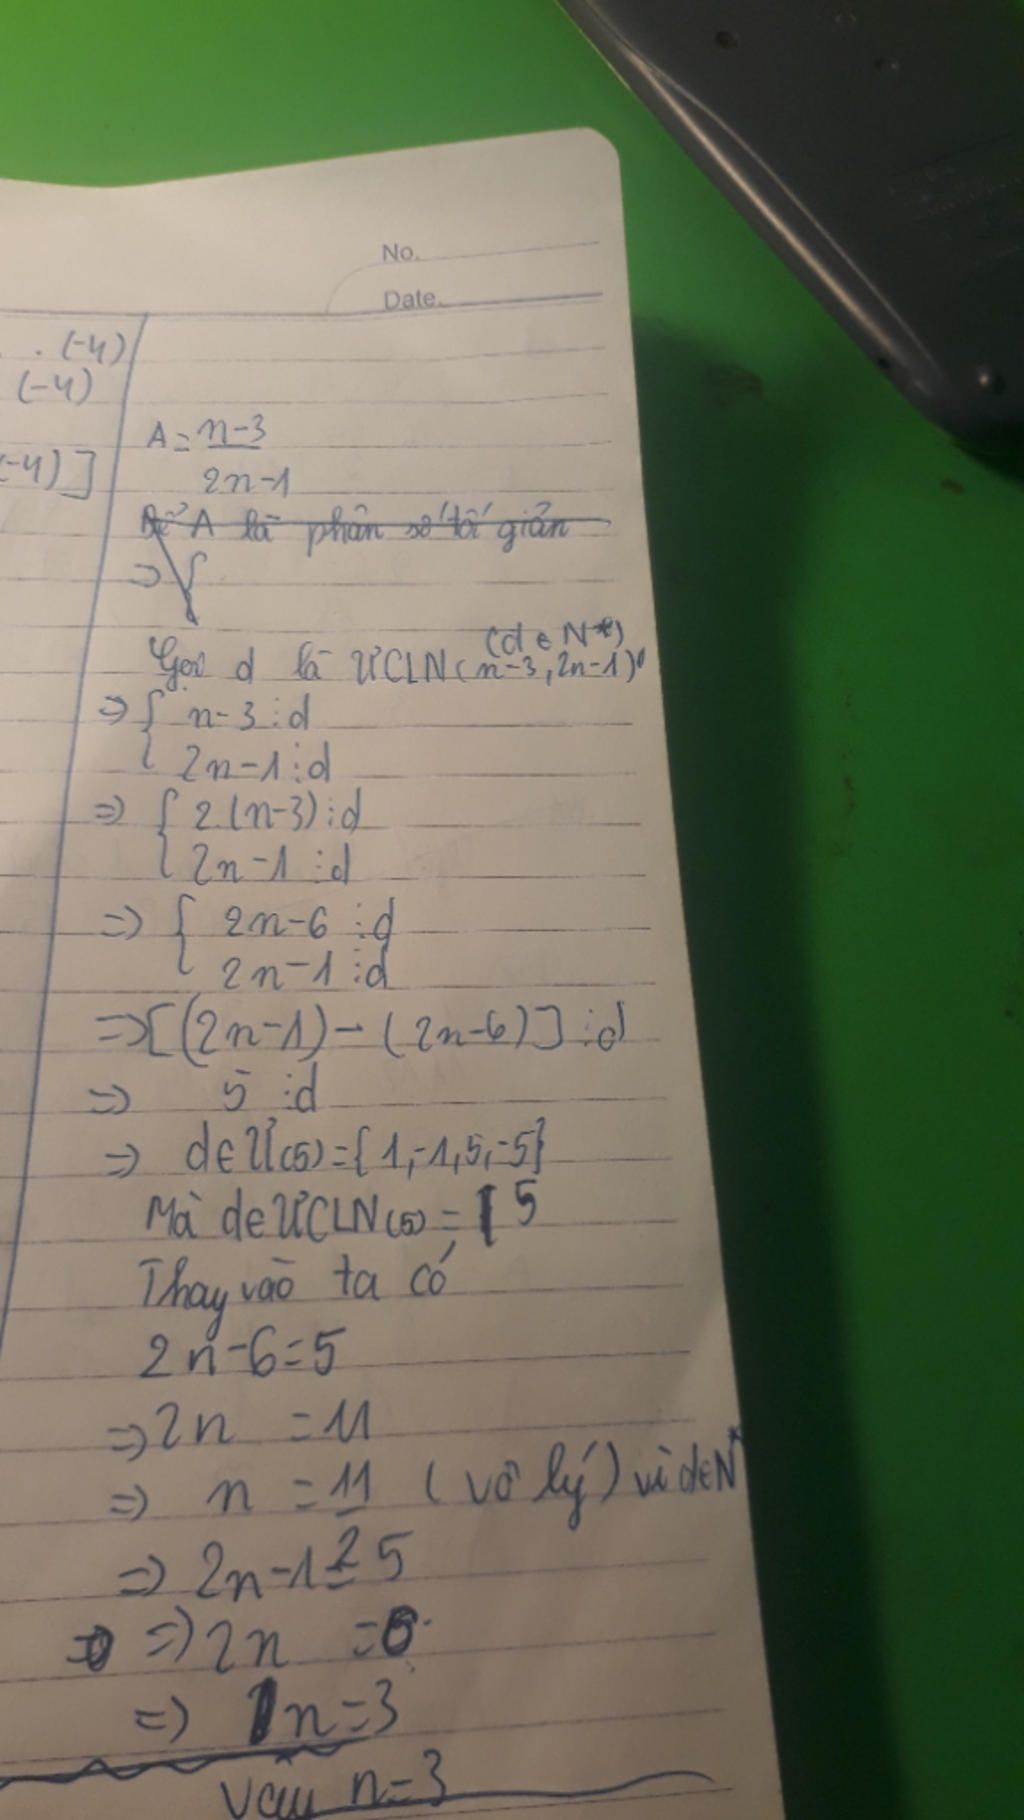 No.
Date.
. (-4)
(-4)
-4)]
A = n-3
2n-1
Để A là phân số tối giản
=> {
(d ∈ N*)
Gọi d là ƯCLN(n-3, 2n-1)
=> { n-3 ⋮ d
2n-1 ⋮ d
=> { 2(n-3) ⋮ d
2n-1 ⋮ d
=> { 2n-6 ⋮ d
2n-1 ⋮ d
=> [(2n-1) - (2n-6)] ⋮ d
=> 5 ⋮ d
=> d ∈ Ư(5) = {1,-1,5,-5}
Mà d ∈ ƯCLN(5) = 5
Thay vào ta có
2n-6=5
=> 2n = 11
=> n = 11 (vô lý) vì d ∈ N*
2
=> 2n-1 = 5
=> 2n = 6
=> n=3
Vậy n=3